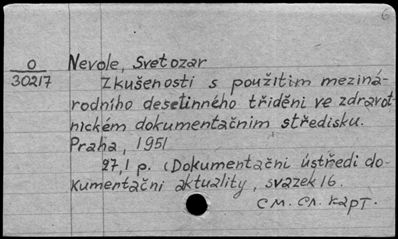 6
O Nevole, Svetozar
30217 Zkušenosti s použitim meziná-
rodního desetinného třiděni ve zdravot-
nickém dokumentačnim středisku.
Praha, 1951
27,1 p. (Dokumentačni ústředi do-
kumentačni aktuality, svazek 16.
см. сл. карт.